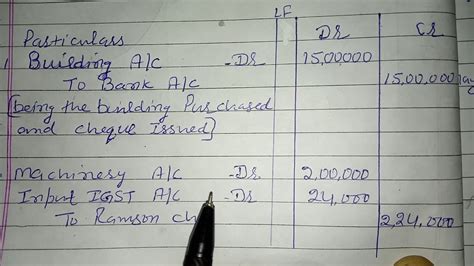 LF
Particulars Dr Cr
Building A/c -Dr 15,00,000
To Bank A/c 15,00,000
[being the building Purchased
and cheque Issued]
Machinery A/c -Dr 2,00,000
Input IGST A/c -Dr 24,000
To Ramson 2,24,000